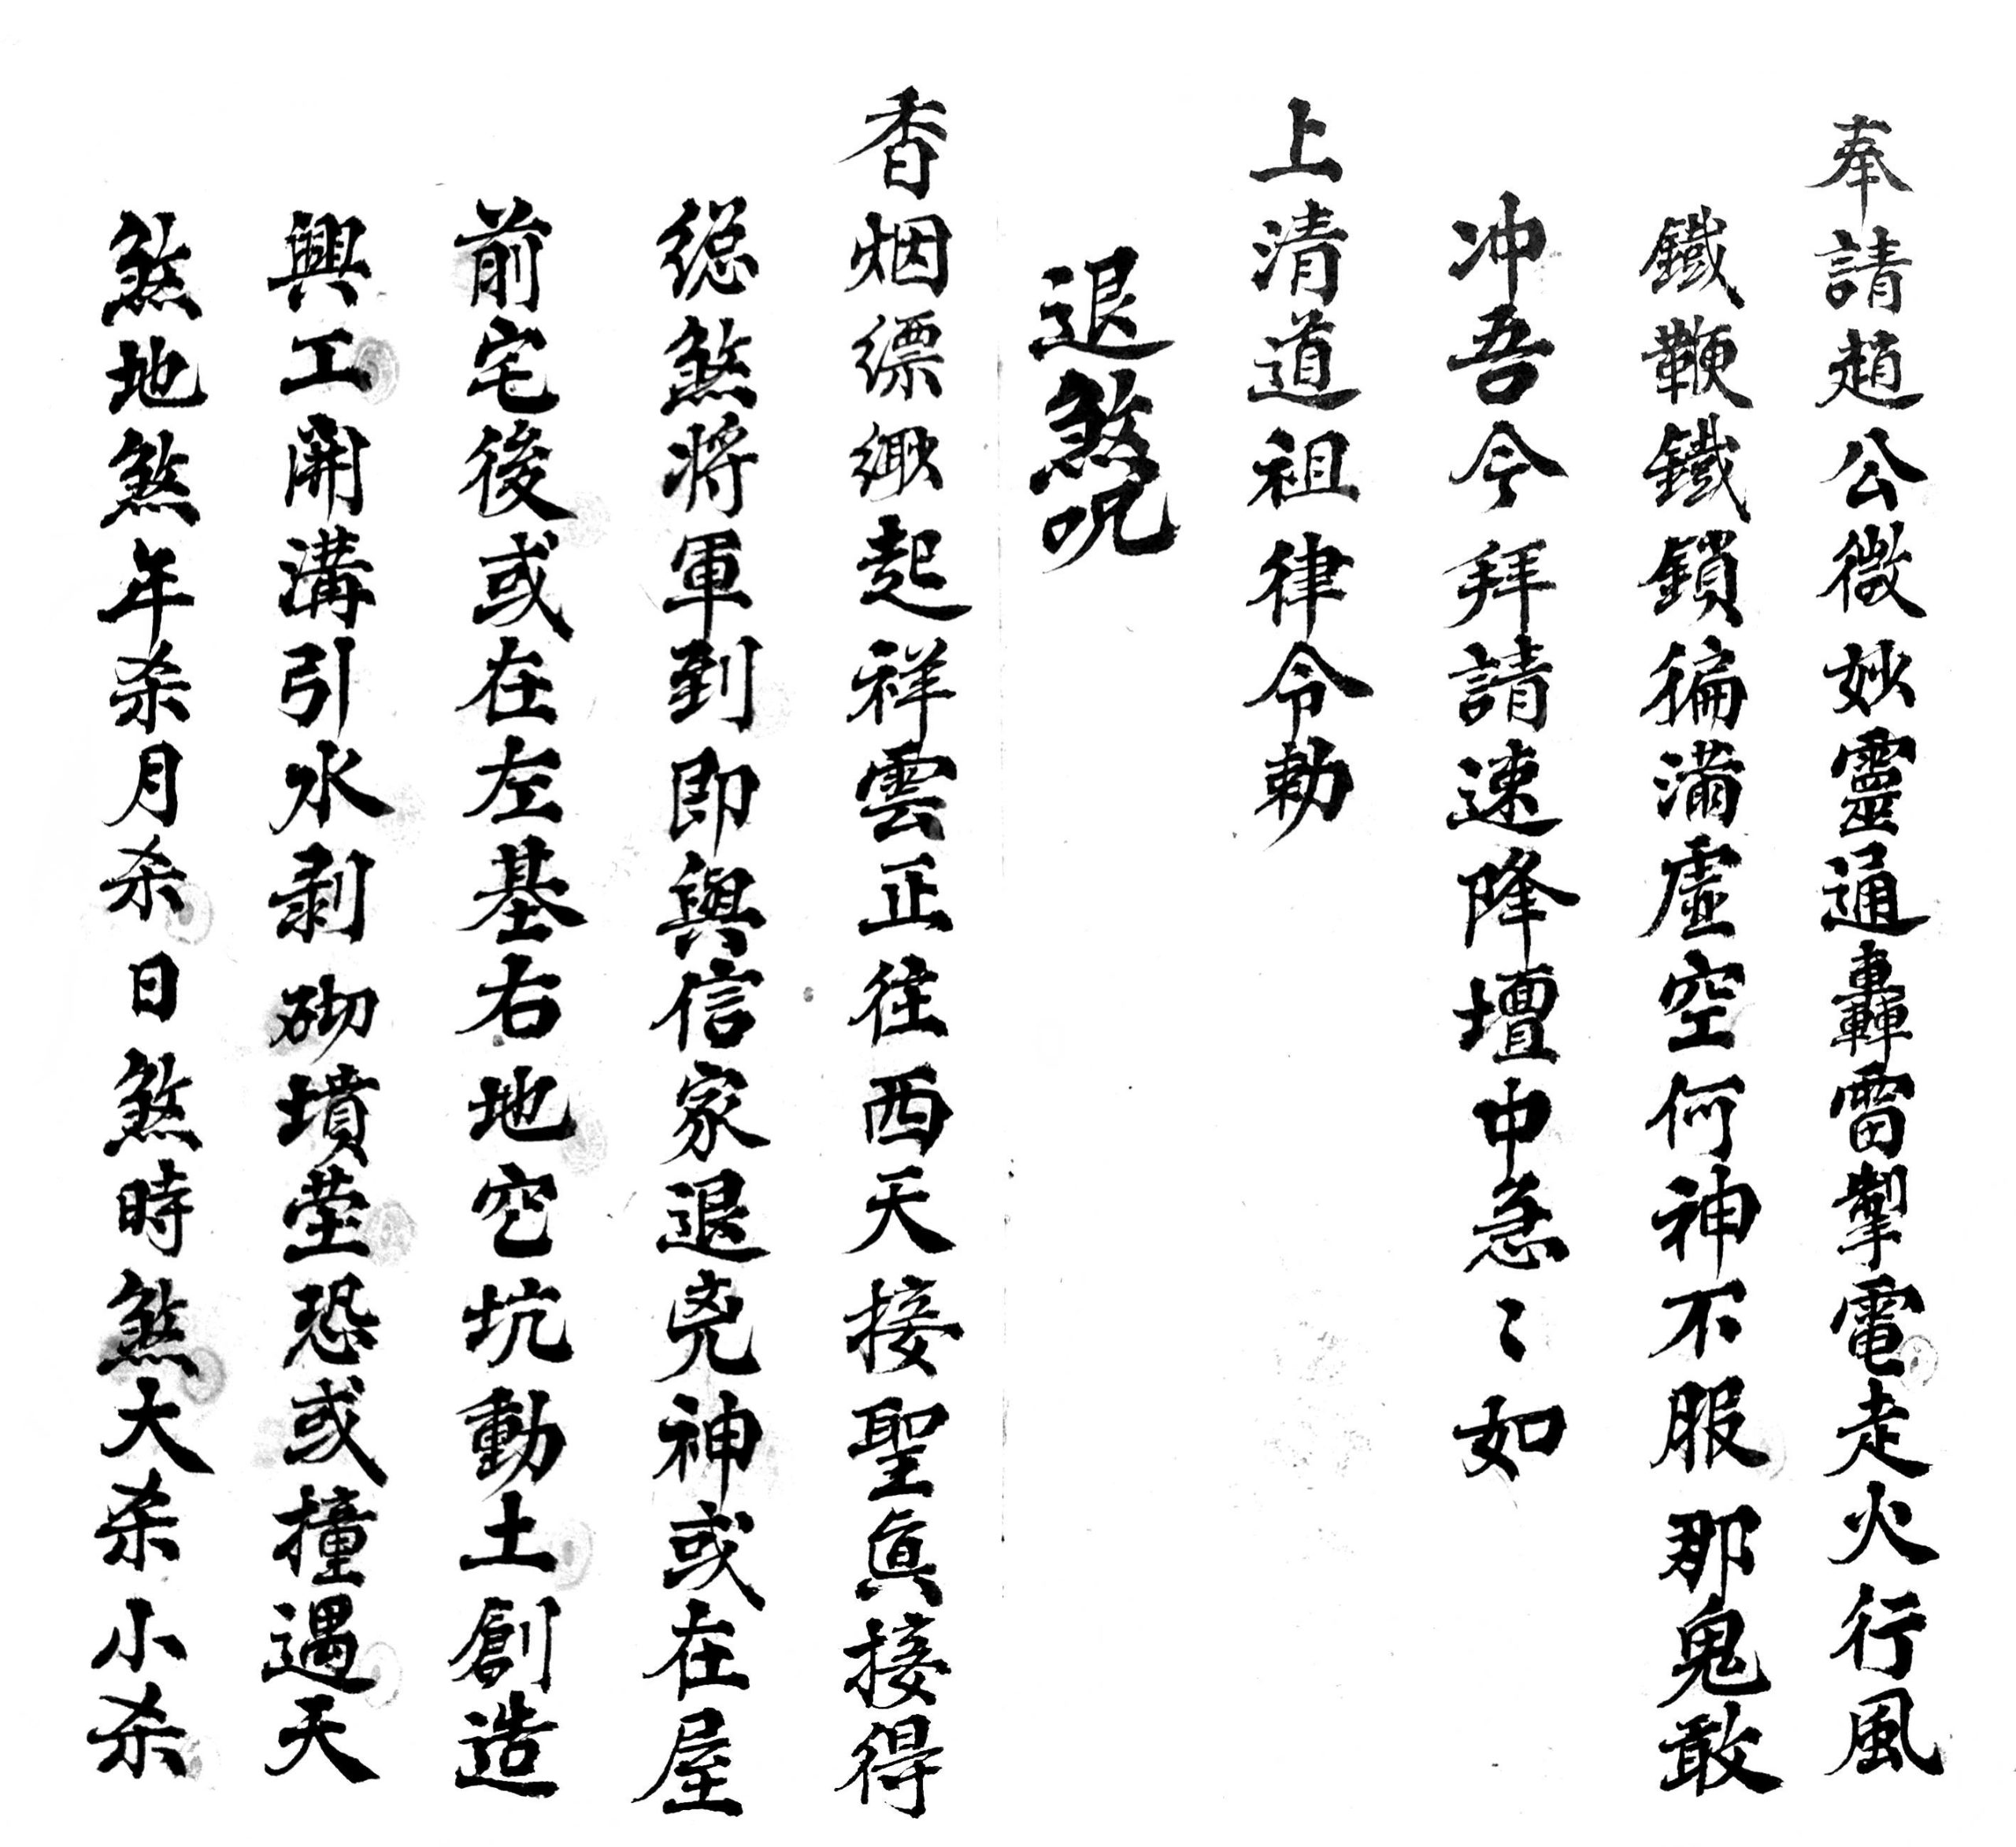 奉請趙公微妙靈通轟雷掣電走火行風
鐵鞭鐵鎖徧滿虛空何神不服那鬼敢
冲吾今拜請速降壇中急〻如
上清道祖律令勅
退煞呪
香烟縹緲起祥雲正往西天接聖眞接得
総煞將軍到即與信家退兇神或在屋
前宅後或在左基右地空坑動土創造
興工開溝引水剥砌墳塋恐或撞遇天
煞地煞年杀月杀日煞時煞大杀小杀